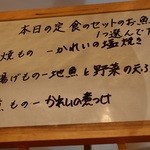 本日の定食のセットのお魚
1つ選んで下
焼もの ー かれいの塩焼き
揚げもの ー 地魚と野菜の天ぷ
もの ー かれいの煮つけ